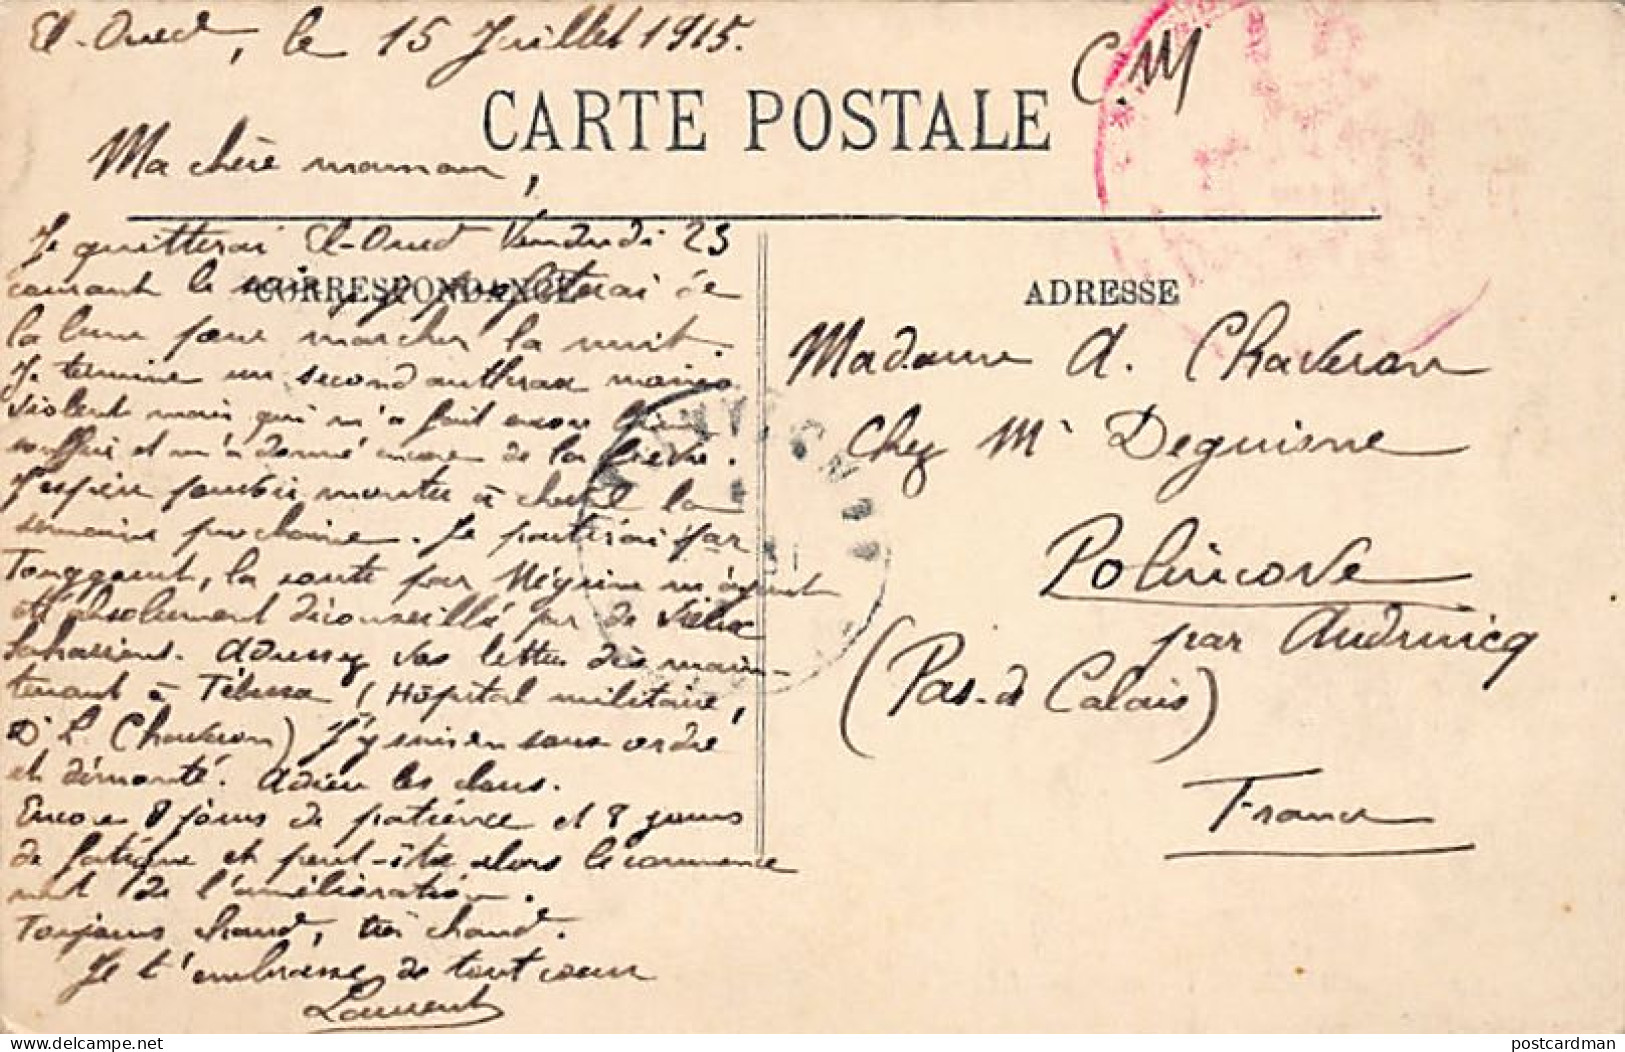 El-Oued, le 15 Juillet 1915.
C.M
CARTE POSTALE
Ma chère maman,
Je quitterai El-Oued Vendredi 23
courant le soir, je profiterai de
la lune pour marcher la nuit.
Je termine un second anthrax moins
violent mais qui m'a fait encore bien
souffrir et m'a donné encore de la fièvre.
J'espère pouvoir monter à cheval la
semaine prochaine. Je partirai par
Touggourt, la route par Négrine m'ayant
été absolument déconseillé par de vieux
Sahariens. Adressez vos lettres dès main-
tenant à Tébessa (Hôpital militaire,
Dr L. Chaveron) J'y suis en sous ordre
et démonté. Adieu les clous.
Encore 8 jours de patience et 8 jours
de fatigue et peut-être alors le commence
ment de l'amélioration.
Toujours chaud, très chaud.
Je t'embrasse de tout coeur
Laurent
CORRESPONDANCE
ADRESSE
Madame A. Chaveron
Chez Mr Deguisne
Polincove
par Audruicq
(Pas-de Calais)
France
postcardman